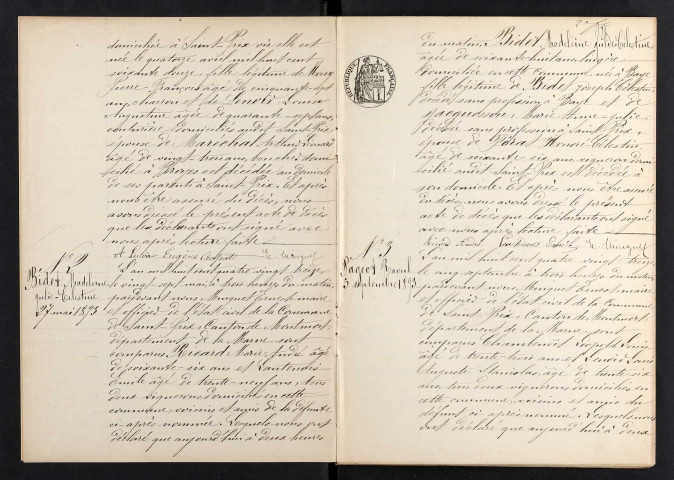 domiciliée à Saint-Prix où elle est
née le quatorze avril mil huit cent
soixante douze fille légitime de
Pierre François âgé de cinquante sept
ans, et de Lenoir Louise
Augustine âgée de quarante sept ans
couturière domiciliés audit Saint Prix
épouse de Maréchal Arthur Lénard
âgé de vingt trois ans, domi-
cilié à est décédée au domicile
de ses parents à Saint-Prix. Et après
nous être assuré du décès, nous
avons dressé le présent acte de décès
que les déclarants ont signé avec
nous après lecture faite
Eugène
N° 2
Bidet Madeleine
Julie Célestine
27 mai 1893
L'an mil huit cent quatre vingt treize
le vingt sept mai, à trois heures du matin
pardevant nous Munquet Ernest maire
et officier de l'état civil de la Commune
de Saint Prix, Canton de Montmort
département de la Marne sont
comparus Ricard Marie André âgé
de soixante six ans et Lantenois
Emile âgé de trente neuf ans, tous
deux vignerons domiciliés en cette
commune, voisins et amis de la défunte
ci-après nommée. Lesquels nous ont
déclaré que aujourd'hui à deux heures
du matin, Bidet Madeleine Julie Célestine
âgée de soixante huit ans,
domiciliée en cette commune, née à Baye
fille légitime de Bidet Joseph Célestin,
décédé sans profession à Baye et de
Jacquesson Marie Anne Julie
décédée sans profession à Saint Prix,
épouse de Honoré Célestin
âgé de soixante six ans vigneron domi-
cilié audit Saint Prix est décédée à
son domicile. Et après nous être assuré
du décès nous avons dressé le présent
acte de décès que les déclarants ont signé
avec nous après lecture faite
RÉPUBLIQUE FRANÇAISE
N° 3
Pageot Raoul
5 septembre 1893
L'an mil huit cent quatre vingt treize
le cinq septembre à trois heures du matin,
pardevant nous Munquet Ernest maire
et officier de l'état civil de la Commune
de Saint Prix, Canton de Montmort
département de la Marne sont
comparus Chambenoit Léopold Louis
âgé de trente trois ans et Lenoir Louis
Auguste Stanislas âgé de trente six
ans, tous deux vignerons domiciliés en
cette commune, voisins et amis du
défunt ci-après nommé. Lesquels nous
ont déclaré que aujourd'hui à deux